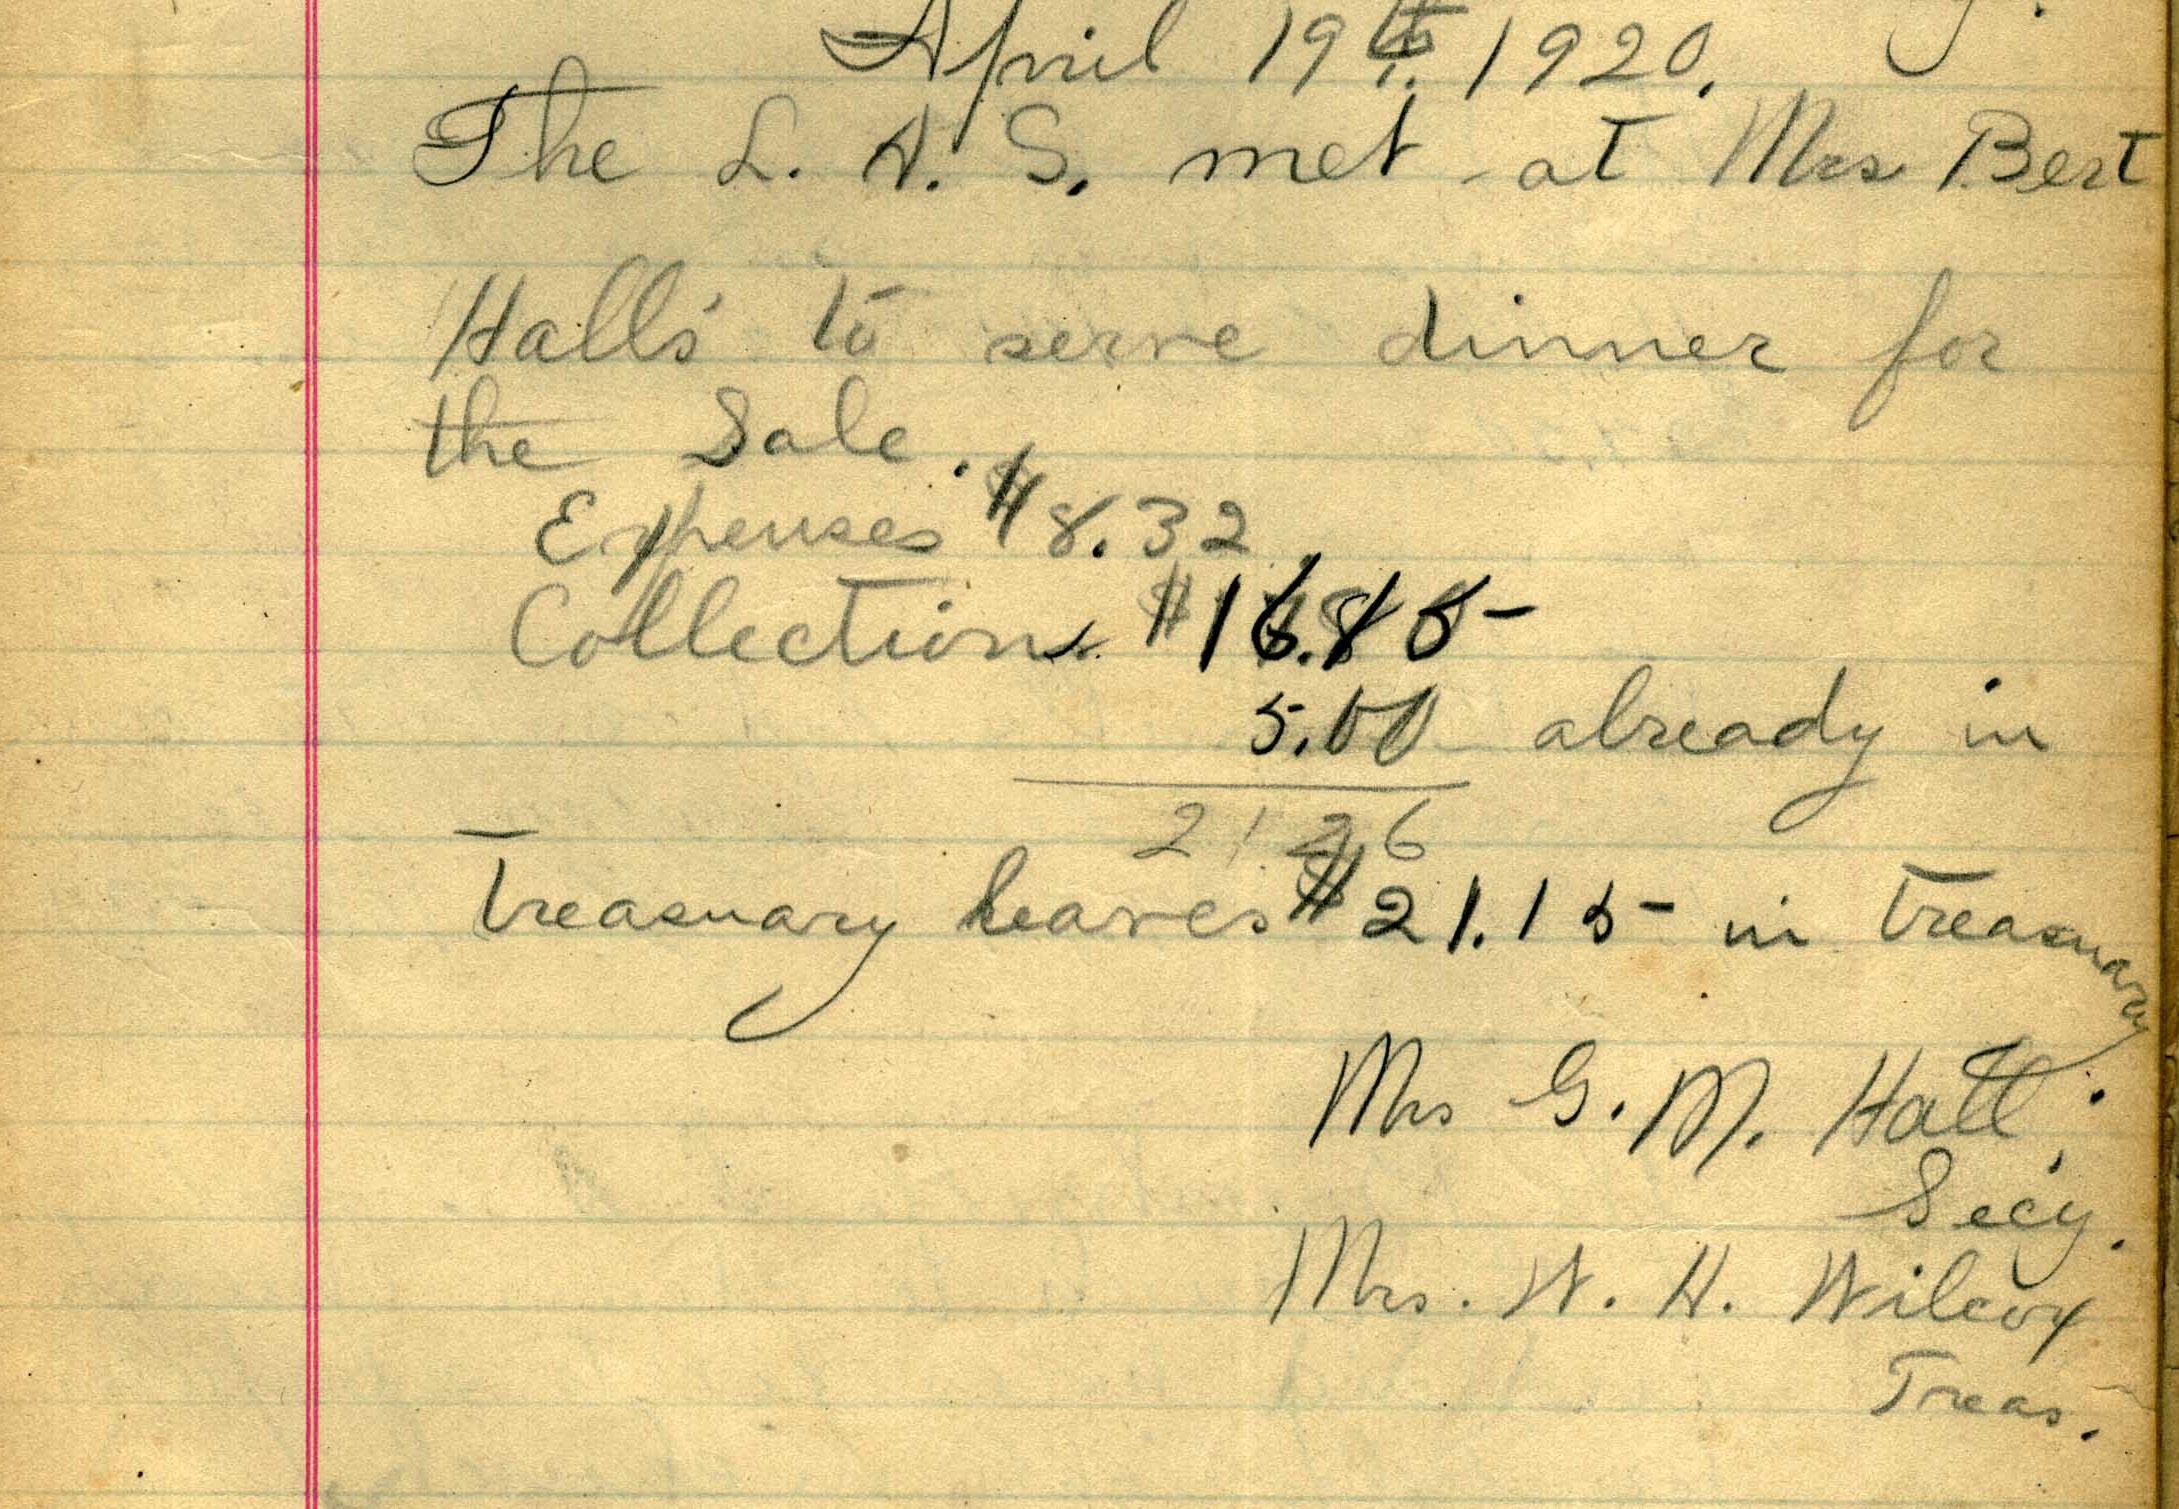 April 19th. 1920.
The L. A. S. met at Mrs Bert
Halls' to serve dinner for
the Sale.
Expenses $8.32
Collection $16.15
5.00 already in
21.26
Treasuary leaves $21.15 in Treasuary
Mrs G. M. Hall,
Secy.
Mrs. W. H. Wilcox
Treas.